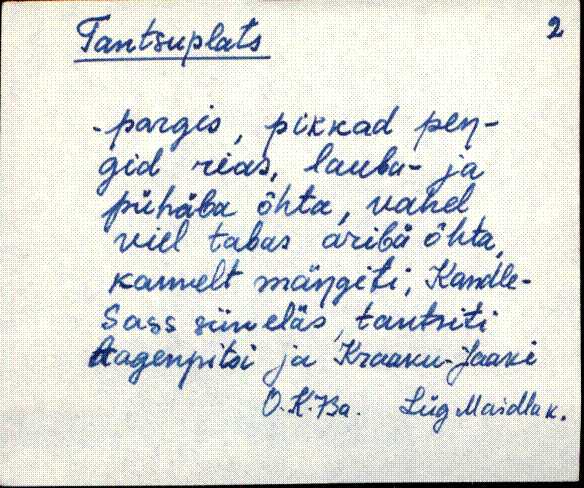 Tantsuplats
2
- pargis, pikkad peŋ-
gid rias, lauba- ja
pühäba õhta, vahel
viel tabas äribä õhta,
kannelt mängiti; Kandle-
Sass siin eläs, tantsiti
Aagenpitsi ja Kraavu-Jaaki
O.K. Va. Lüg Maidla k.